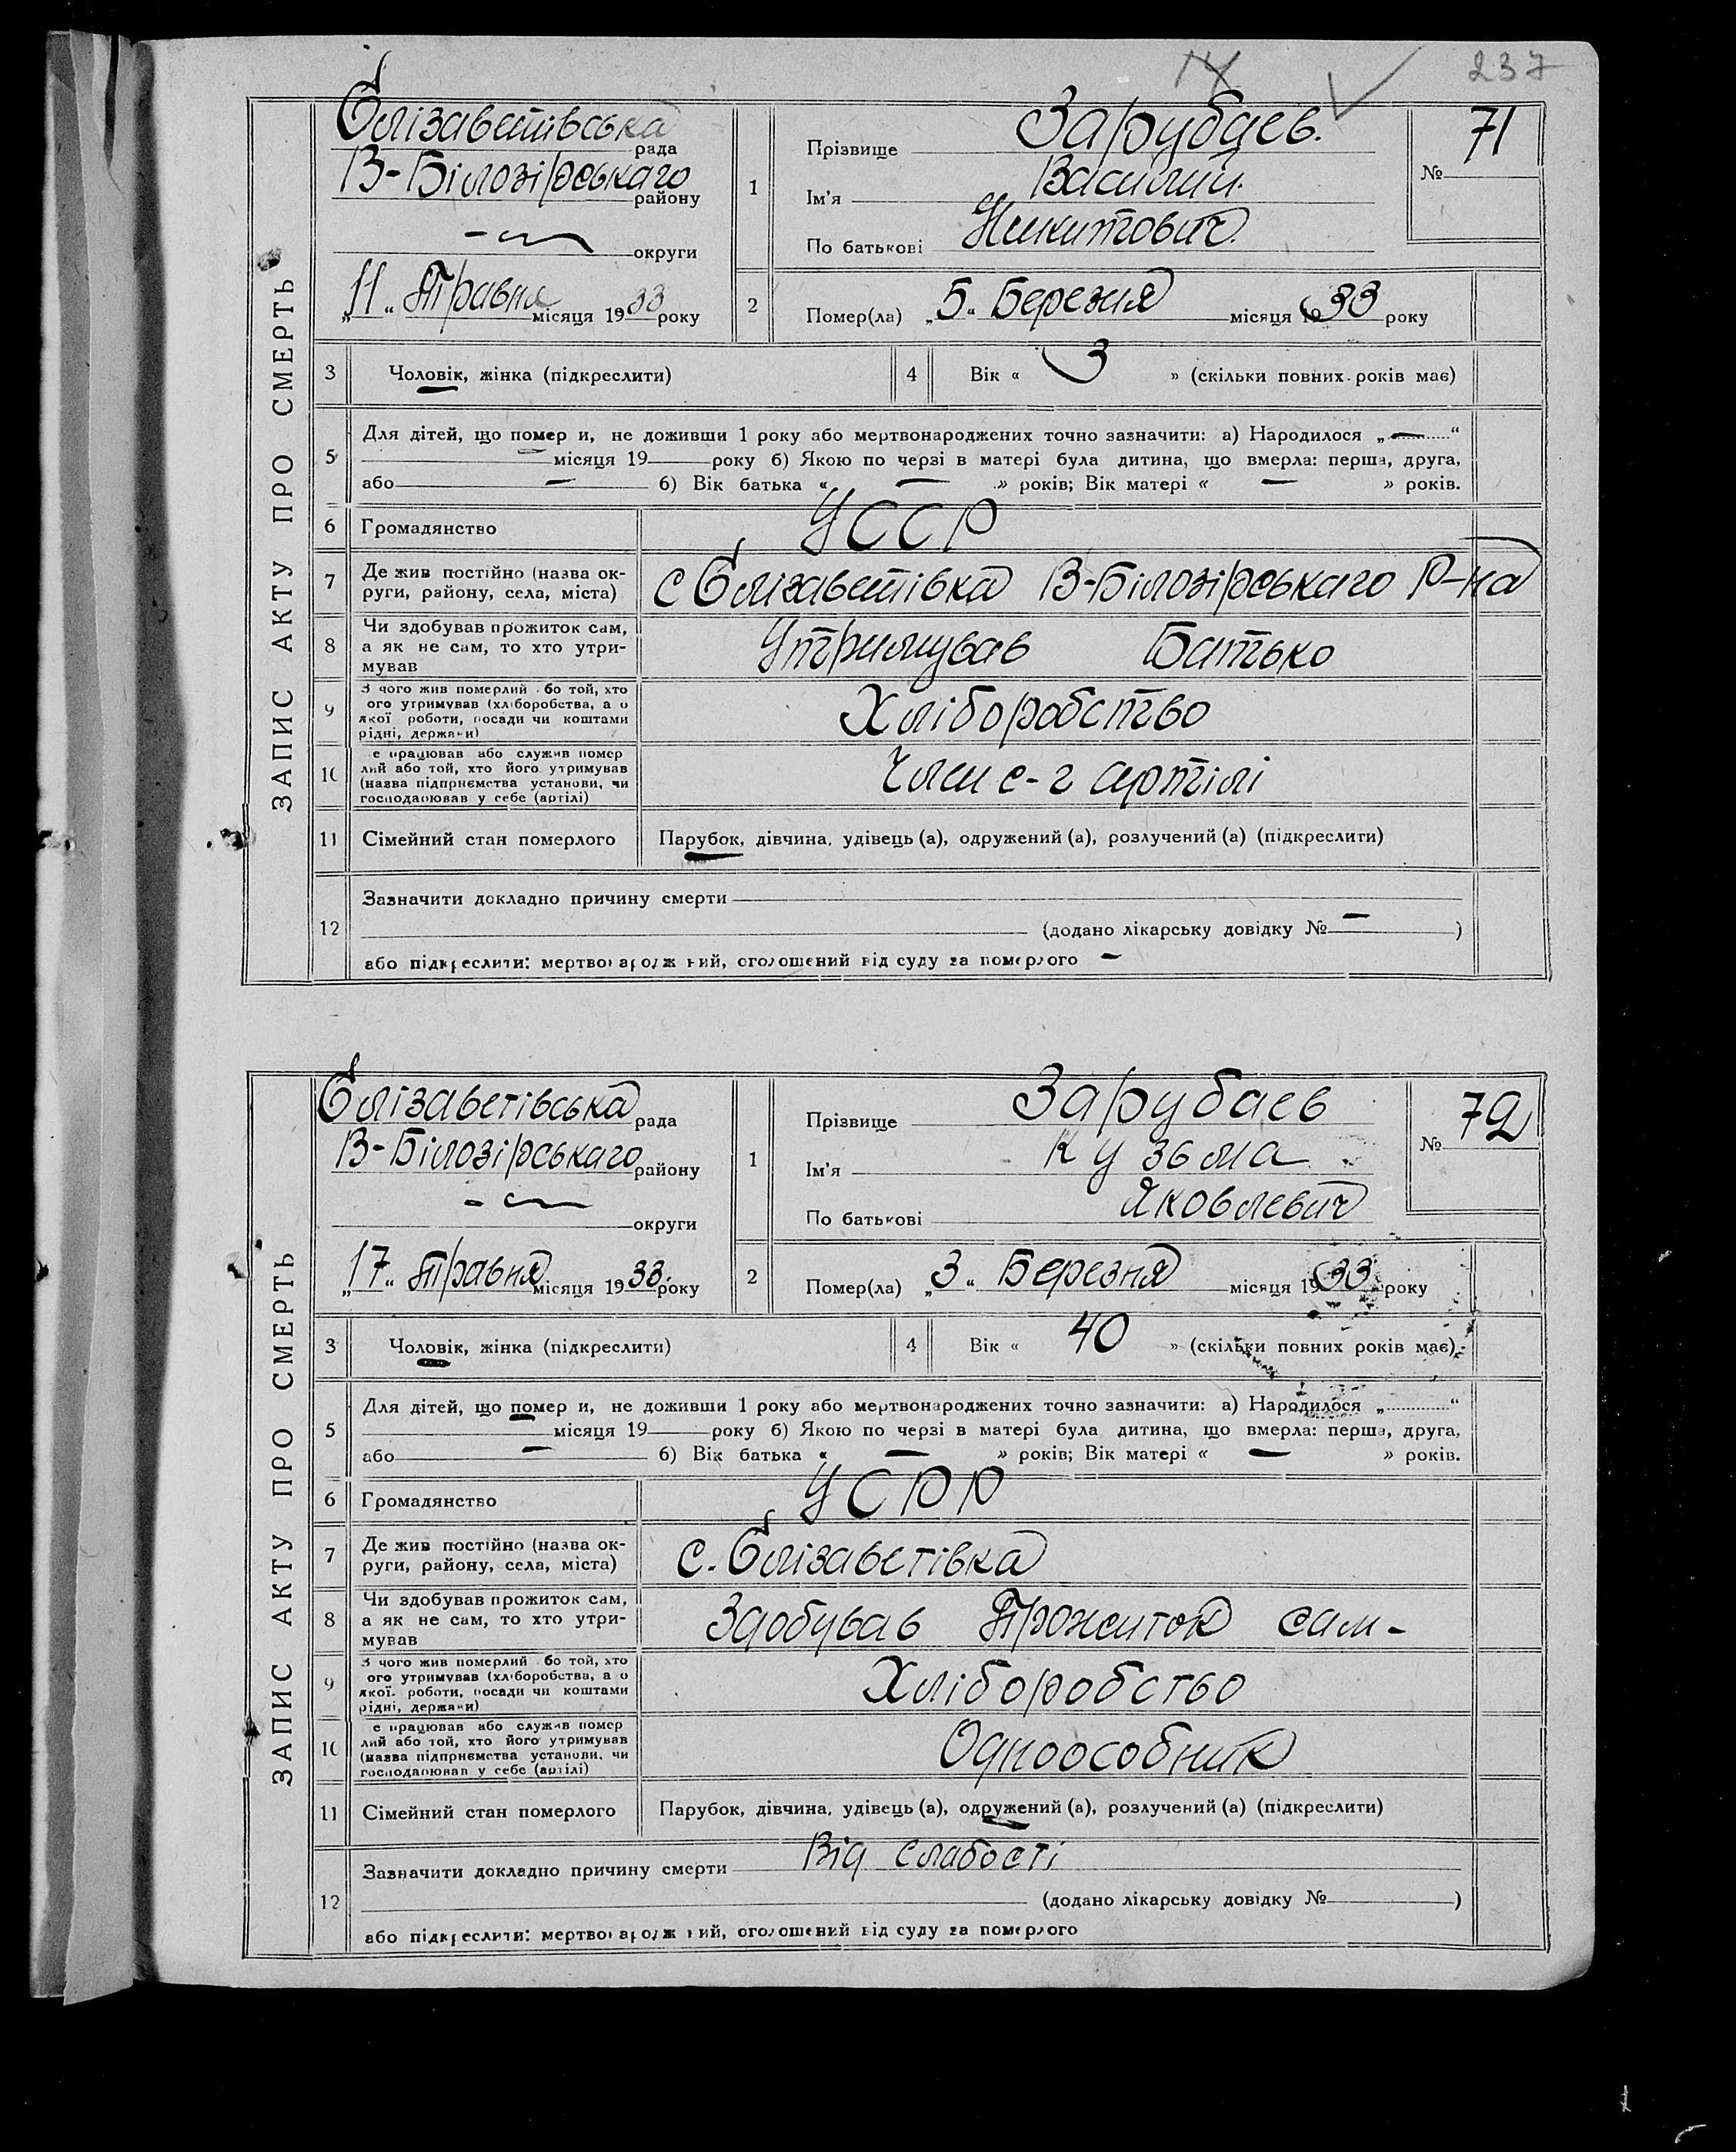 237
Єлізаветівська
рада
В-Білозірськаго
району
округи
11 Травня місяця 1933 року
1
Прізвище Зарубаев.
Ім'я Василий.
По батькові Никитович.
№ 71
2
Помер(ла) „5“ Березня місяця 1933 року
3 Чоловік, жінка (підкреслити)
4 Вік « 3 » (скільки повних років має)
ЗАПИС АКТУ ПРО СМЕРТЬ
5 Для дітей, що помер и, не доживши 1 року або мертвонароджених точно зазначити: а) Народилося „—“
місяця 19 року б) Якою по черзі в матері була дитина, що вмерла: перша, друга,
або — б) Вік батька « — » років; Вік матері « — » років.
6 Громадянство УССР
7 Де жив постійно (назва ок-
руги, району, села, міста)
с Єлізаветівка В-Білозірськаго Р-на
8 Чи здобував прожиток сам,
а як не сам, то хто утри-
мував
Утримував Батько
9 З чого жив померлий бо той, хто
ого утримував (хліборобства, а о
якої роботи, посади чи коштами
рідні, держави)
Хліборобство
10 е працював або служив помер
лий або той, хто його утримував
(назва підприємства установи, чи
господарював у себе (артілі)
Член с-г артілі
11 Сімейний стан померлого Парубок, дівчина, удівець (а), одружений (а), розлучений (а) (підкреслити)
12 Зазначити докладно причину смерти
(додано лікарську довідку № — )
або підкреслити: мертвонароджений, оголошений від суду за померлого —
Єлізаветівська
рада
В-Білозірськаго
району
округи
17 Травня місяця 1933 року
1
Прізвище Зарубаев
Ім'я Кузьма
По батькові Яковлевич
№ 72
2
Помер(ла) „3“ Березня місяця 1933 року
3 Чоловік, жінка (підкреслити)
4 Вік « 40 » (скільки повних років має)
ЗАПИС АКТУ ПРО СМЕРТЬ
5 Для дітей, що помер и, не доживши 1 року або мертвонароджених точно зазначити: а) Народилося „ “
місяця 19 року б) Якою по черзі в матері була дитина, що вмерла: перша, друга,
або — б) Вік батька « — » років; Вік матері « — » років.
6 Громадянство УСРР
7 Де жив постійно (назва ок-
руги, району, села, міста)
с. Єлізаветівка
8 Чи здобував прожиток сам,
а як не сам, то хто утри-
мував
Здобував Прожиток сам -
9 З чого жив померлий бо той, хто
ого утримував (хліборобства, а о
якої роботи, посади чи коштами
рідні, держави)
Хліборобство
10 е працював або служив помер
лий або той, хто його утримував
(назва підприємства установи, чи
господарював у себе (артілі)
Одноособник
11 Сімейний стан померлого Парубок, дівчина, удівець (а), одружений (а), розлучений (а) (підкреслити)
12 Зазначити докладно причину смерти Від слабості
(додано лікарську довідку № )
або підкреслити: мертвонароджений, оголошений від суду за померлого